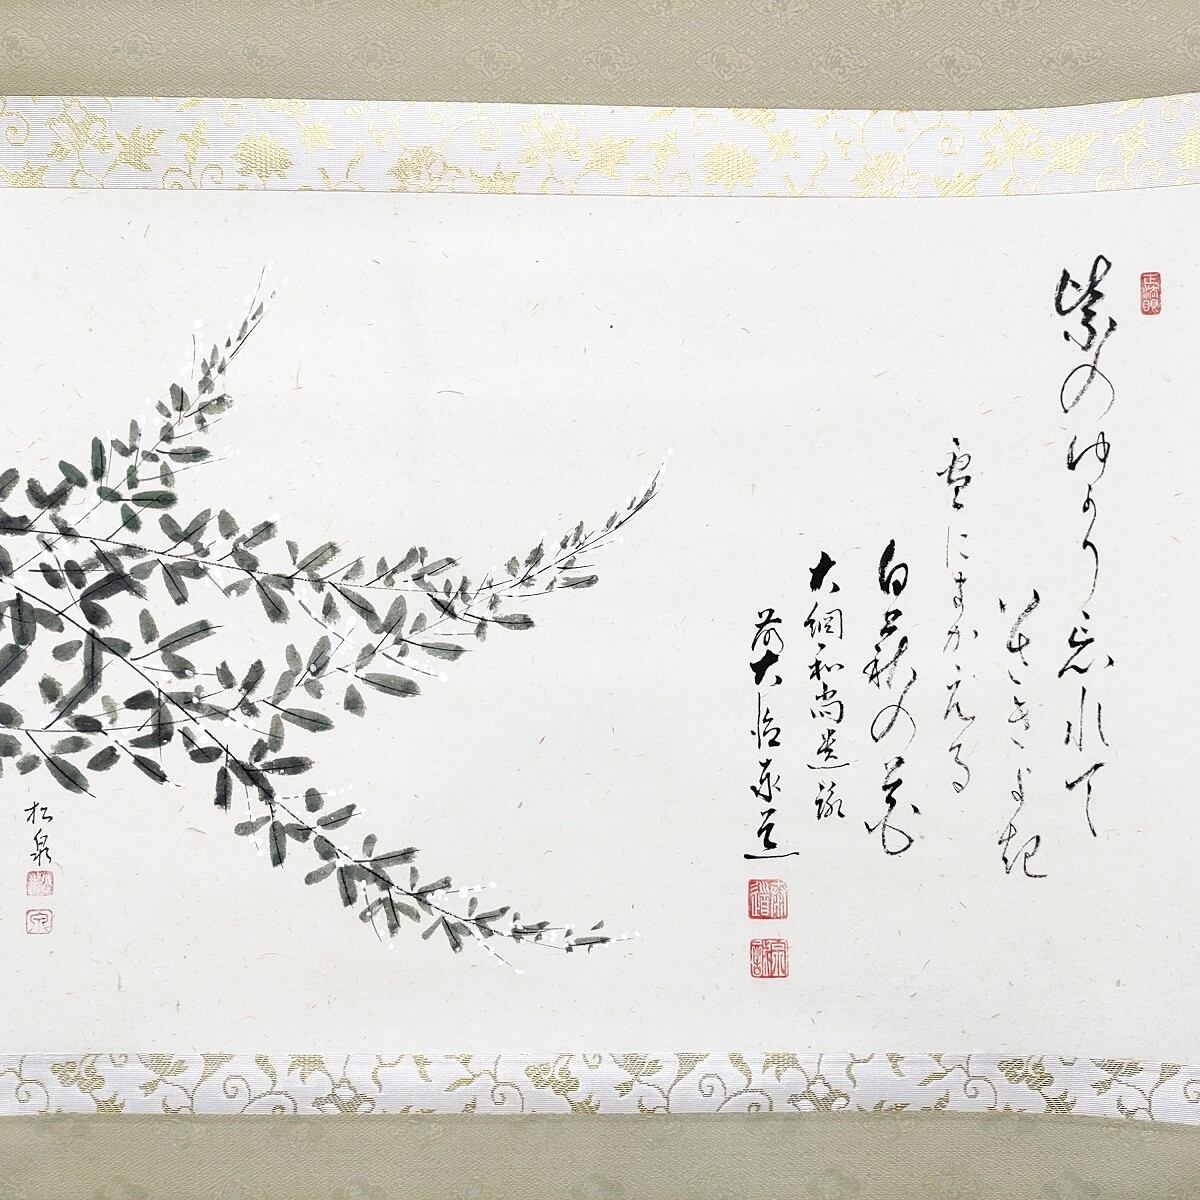 紫のゆかり忘れて
いさきよき
雪にまかえる
白萩の花
大綱和尚遺詠
前大徳泰道
松泉